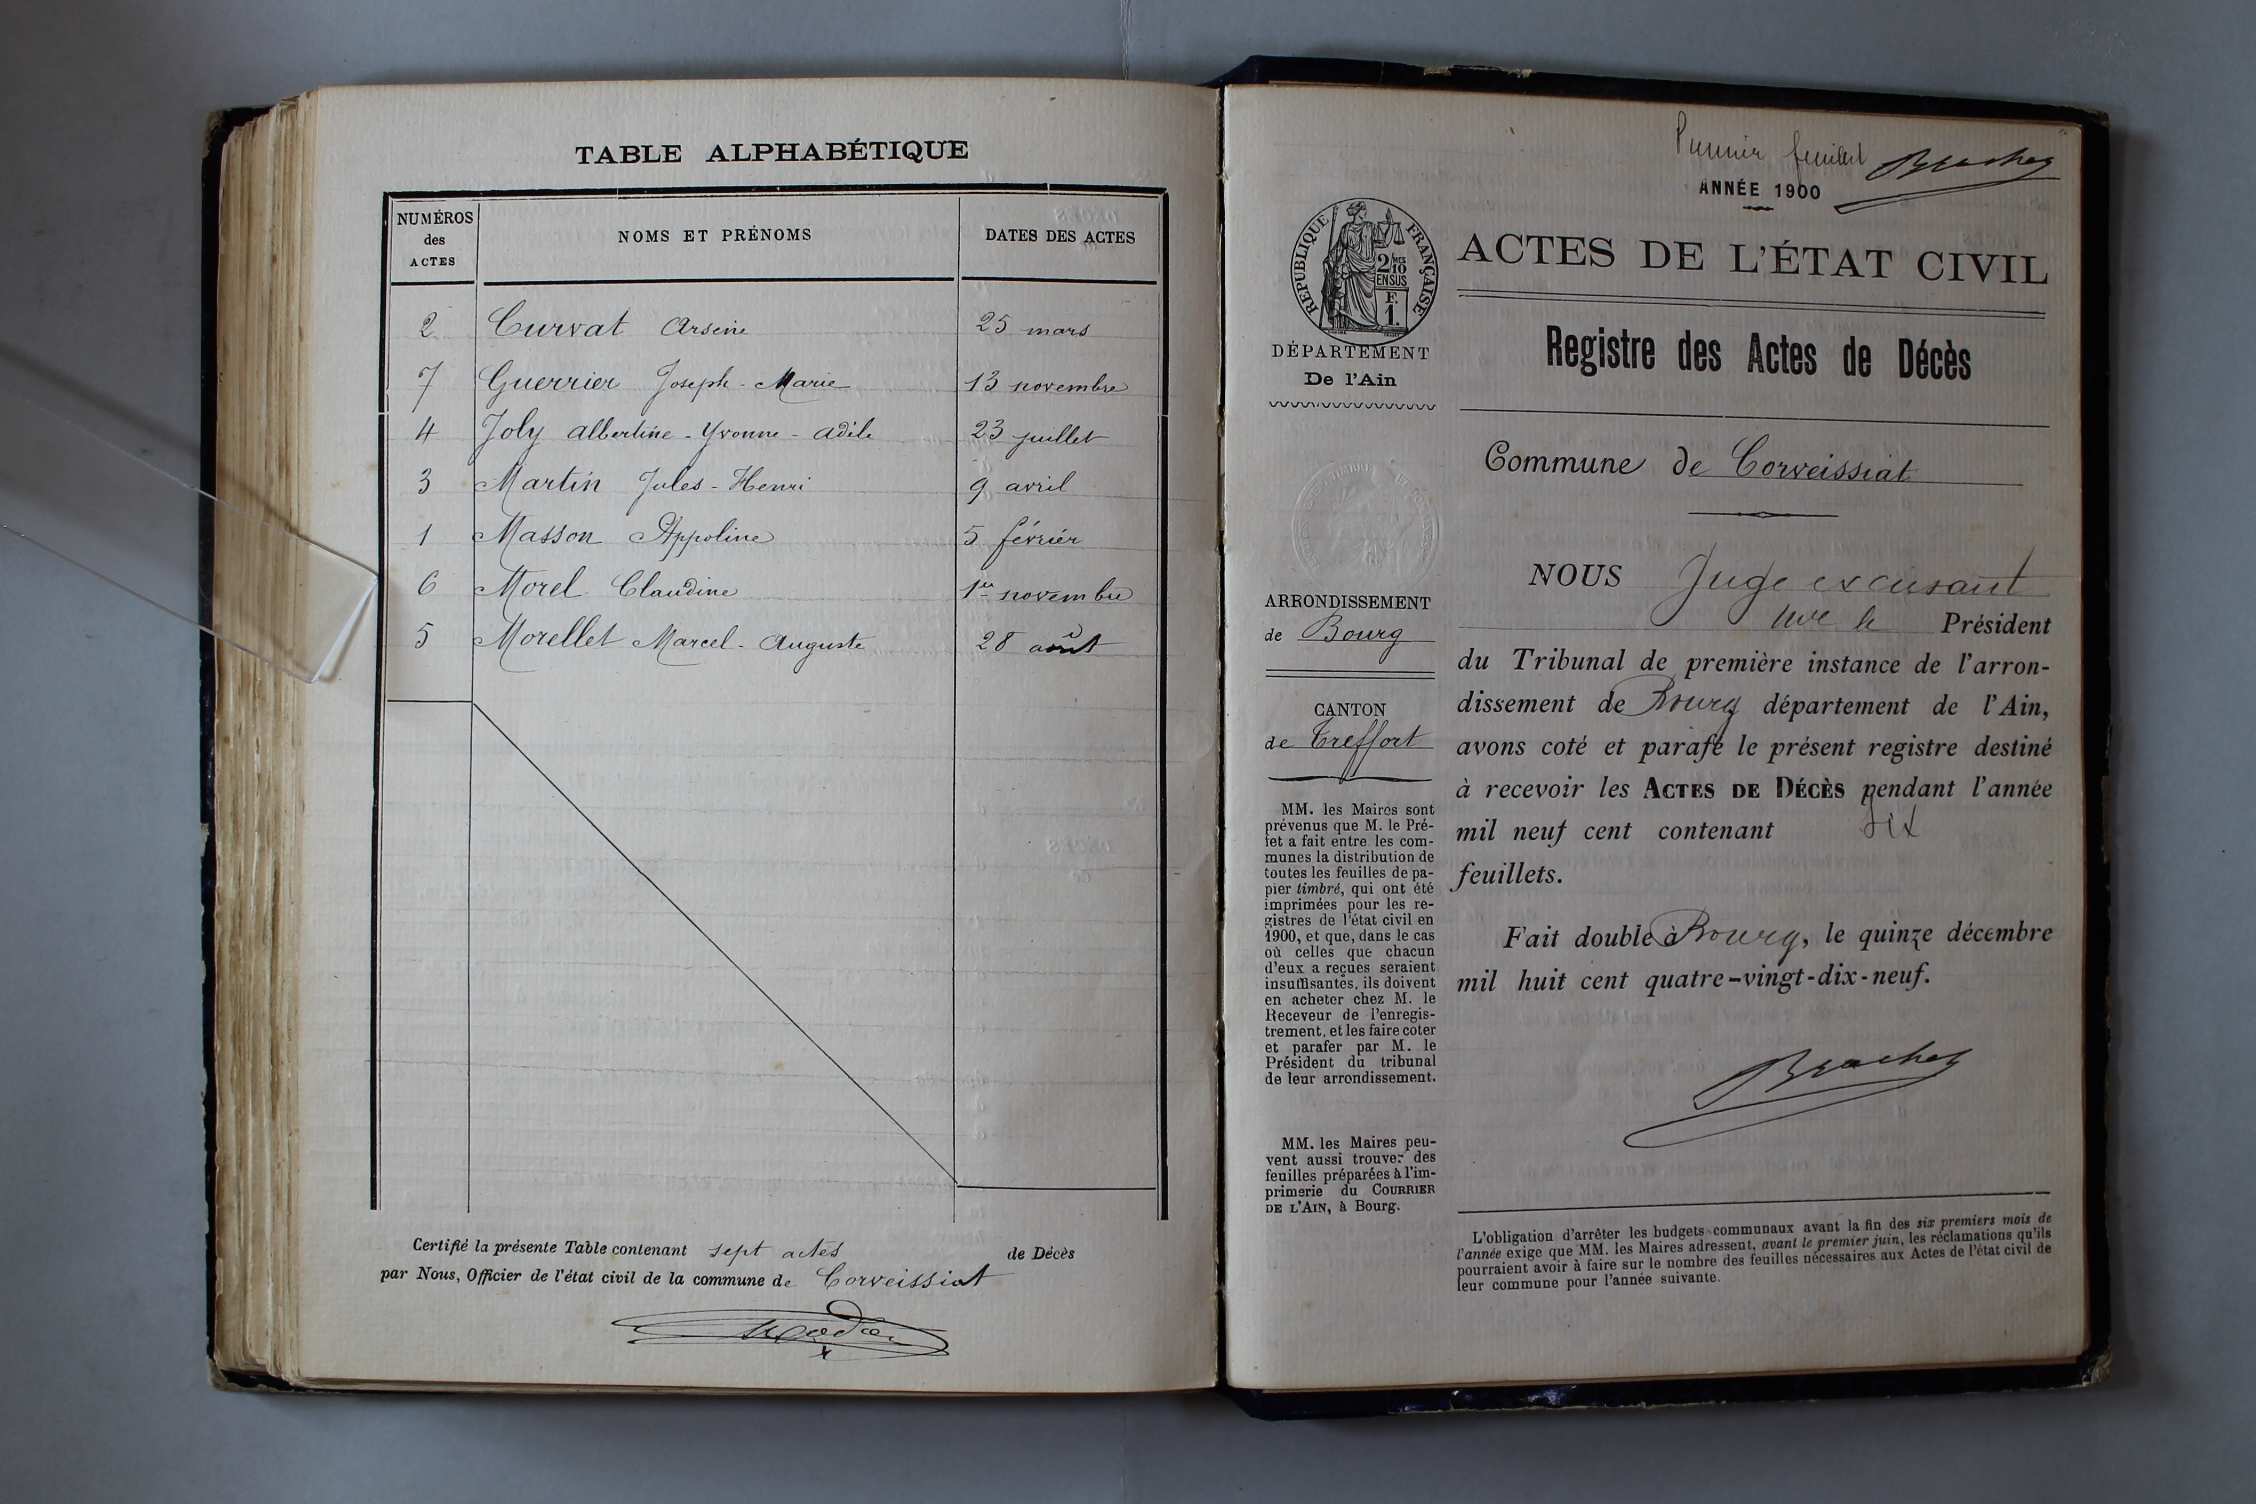 TABLE ALPHABÉTIQUE
NUMÉROS des ACTES NOMS ET PRÉNOMS DATES DES ACTES
2 Curvat Arsène 25 mars
7 Guerrier Joseph-Marie 13 novembre
4 Joly Albertine-Yvonne-Adèle 23 juillet
3 Martin Jules-Henri 9 avril
1 Masson Appoline 5 février
6 Morel Claudine 1er novembre
5 Morellet Marcel-Auguste 28 août
Certifié la présente Table contenant sept actes de Décès
par Nous, Officier de l'état civil de la commune de Corveissiat
Premier feuillet
Brachet
ANNÉE 1900
RÉPUBLIQUE FRANÇAISE
2/10 EN SUS
F. 1.
DÉPARTEMENT
De l'Ain
ARRONDISSEMENT
de Bourg
CANTON
de Treffort
MM. les Maires sont
prévenus que M. le Pré-
fet a fait entre les com-
munes la distribution de
toutes les feuilles de pa-
pier timbré, qui ont été
imprimées pour les re-
gistres de l'état civil en
1900, et que, dans le cas
où celles que chacun
d'eux a reçues seraient
insuffisantes, ils doivent
en acheter chez M. le
Receveur de l'enregis-
trement, et les faire coter
et parafer par M. le
Président du tribunal
de leur arrondissement.
MM. les Maires peu-
vent aussi trouver des
feuilles préparées à l'im-
primerie du COURRIER
DE L'AIN, à Bourg.
ACTES DE L'ÉTAT CIVIL
Registre des Actes de Décès
Commune de Corveissiat
NOUS Juge excusant
le Président
du Tribunal de première instance de l'arron-
dissement de Bourg département de l'Ain,
avons coté et parafé le présent registre destiné
à recevoir les ACTES DE DÉCÈS pendant l'année
mil neuf cent contenant dix
feuillets.
Fait double à Bourg, le quinze décembre
mil huit cent quatre-vingt-dix-neuf.
Brachet
L'obligation d'arrêter les budgets communaux avant la fin des six premiers mois de
l'année exige que MM. les Maires adressent, avant le premier juin, les réclamations qu'ils
pourraient avoir à faire sur le nombre des feuilles nécessaires aux Actes de l'état civil de
leur commune pour l'année suivante.